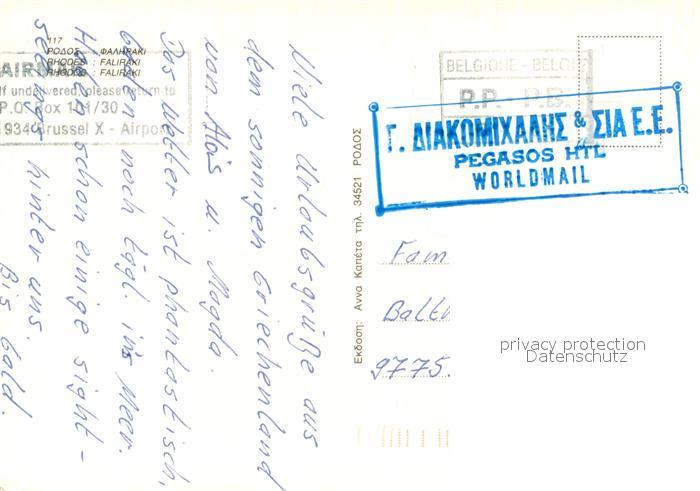 117
ΡΟΔΟΣ : ΦΑΛΗΡΑΚΙ
RHODES : FALIRAKI
RHODOS : FALIRAKI
AIRMAIL
If undelivered, please return to
P.O. Box 101/30
1934 Brussel X - Airport
Viele Urlaubsgrüße aus
dem sonnigen Griechenland
von Alois u. Magda.
Das Wetter ist phantastisch,
baden noch tägl. im Meer.
Haben schon einige sight-
seeings hinter uns.
Bis bald.
Εκδοση: Αννα Καπέτα τηλ. 34521 ΡΟΔΟΣ
BELGIQUE - BELGI
P.P. - P.B.
Γ. ΔΙΑΚΟΜΙΧΑΛΗΣ & ΣΙΑ Ε.Ε.
PEGASOS HTL
WORLDMAIL
Fam
Balth
9775.
privacy protection
Datenschutz